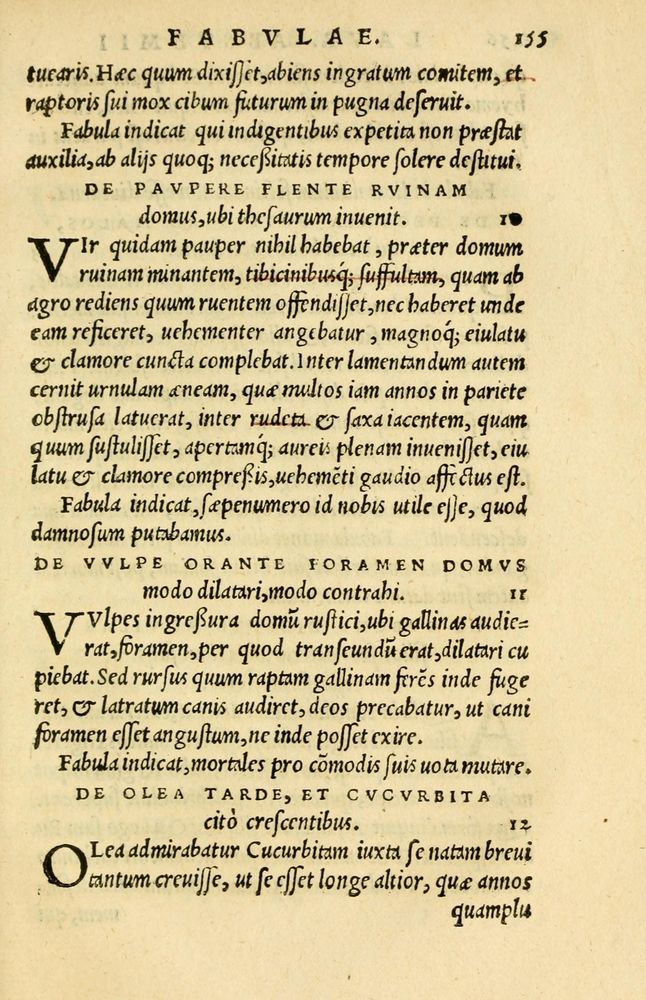 FABVLAE. 155
tuearis. Hæc quum dixisset, abiens ingratum comitem, et
raptoris sui mox cibum futurum in pugna deseruit.
Fabula indicat qui indigentibus expetita non præstat
auxilia, ab alijs quoq; necessitatis tempore solere destitui.
DE PAVPERE FLENTE RVINAM
domus, ubi thesaurum inuenit. 10
VIr quidam pauper nihil habebat, præter domum
ruinam minantem, tibicinibusq́; suffultam, quam ab
agro rediens quum ruentem offendisset, nec haberet unde
eam reficeret, uehementer angebatur, magnoq́; eiulatu
& clamore cuncta complebat. Inter lamentandum autem
cernit urnulam æneam, quæ multos iam annos in pariete
obstrusa latuerat, inter rudeta & saxa iacentem, quam
quum sustulisset, apertamq́; aureis plenam inuenisset, eiu
latu & clamore compressis, uehemẽti gaudio affectus est.
Fabula indicat, sæpenumero id nobis utile esse, quod
damnosum putabamus.
DE VVLPE ORANTE FORAMEN DOMVS
modo dilatari, modo contrahi. 11
VVlpes ingressura domũ rustici, ubi gallinas audie=
rat, foramen, per quod transeundũ erat, dilatari cu
piebat. Sed rursus quum raptam gallinam ferẽs inde fuge
ret, & latratum canis audiret, deos precabatur, ut cani
foramen esset angustum, ne inde posset exire.
Fabula indicat, mortales pro cõmodis suis uota mutare.
DE OLEA TARDE, ET CVCVRBITA
citò crescentibus. 12
OLea admirabatur Cucurbitam iuxta se natam breui
tantum creuisse, ut se esset longe altior, quæ annos
quamplu